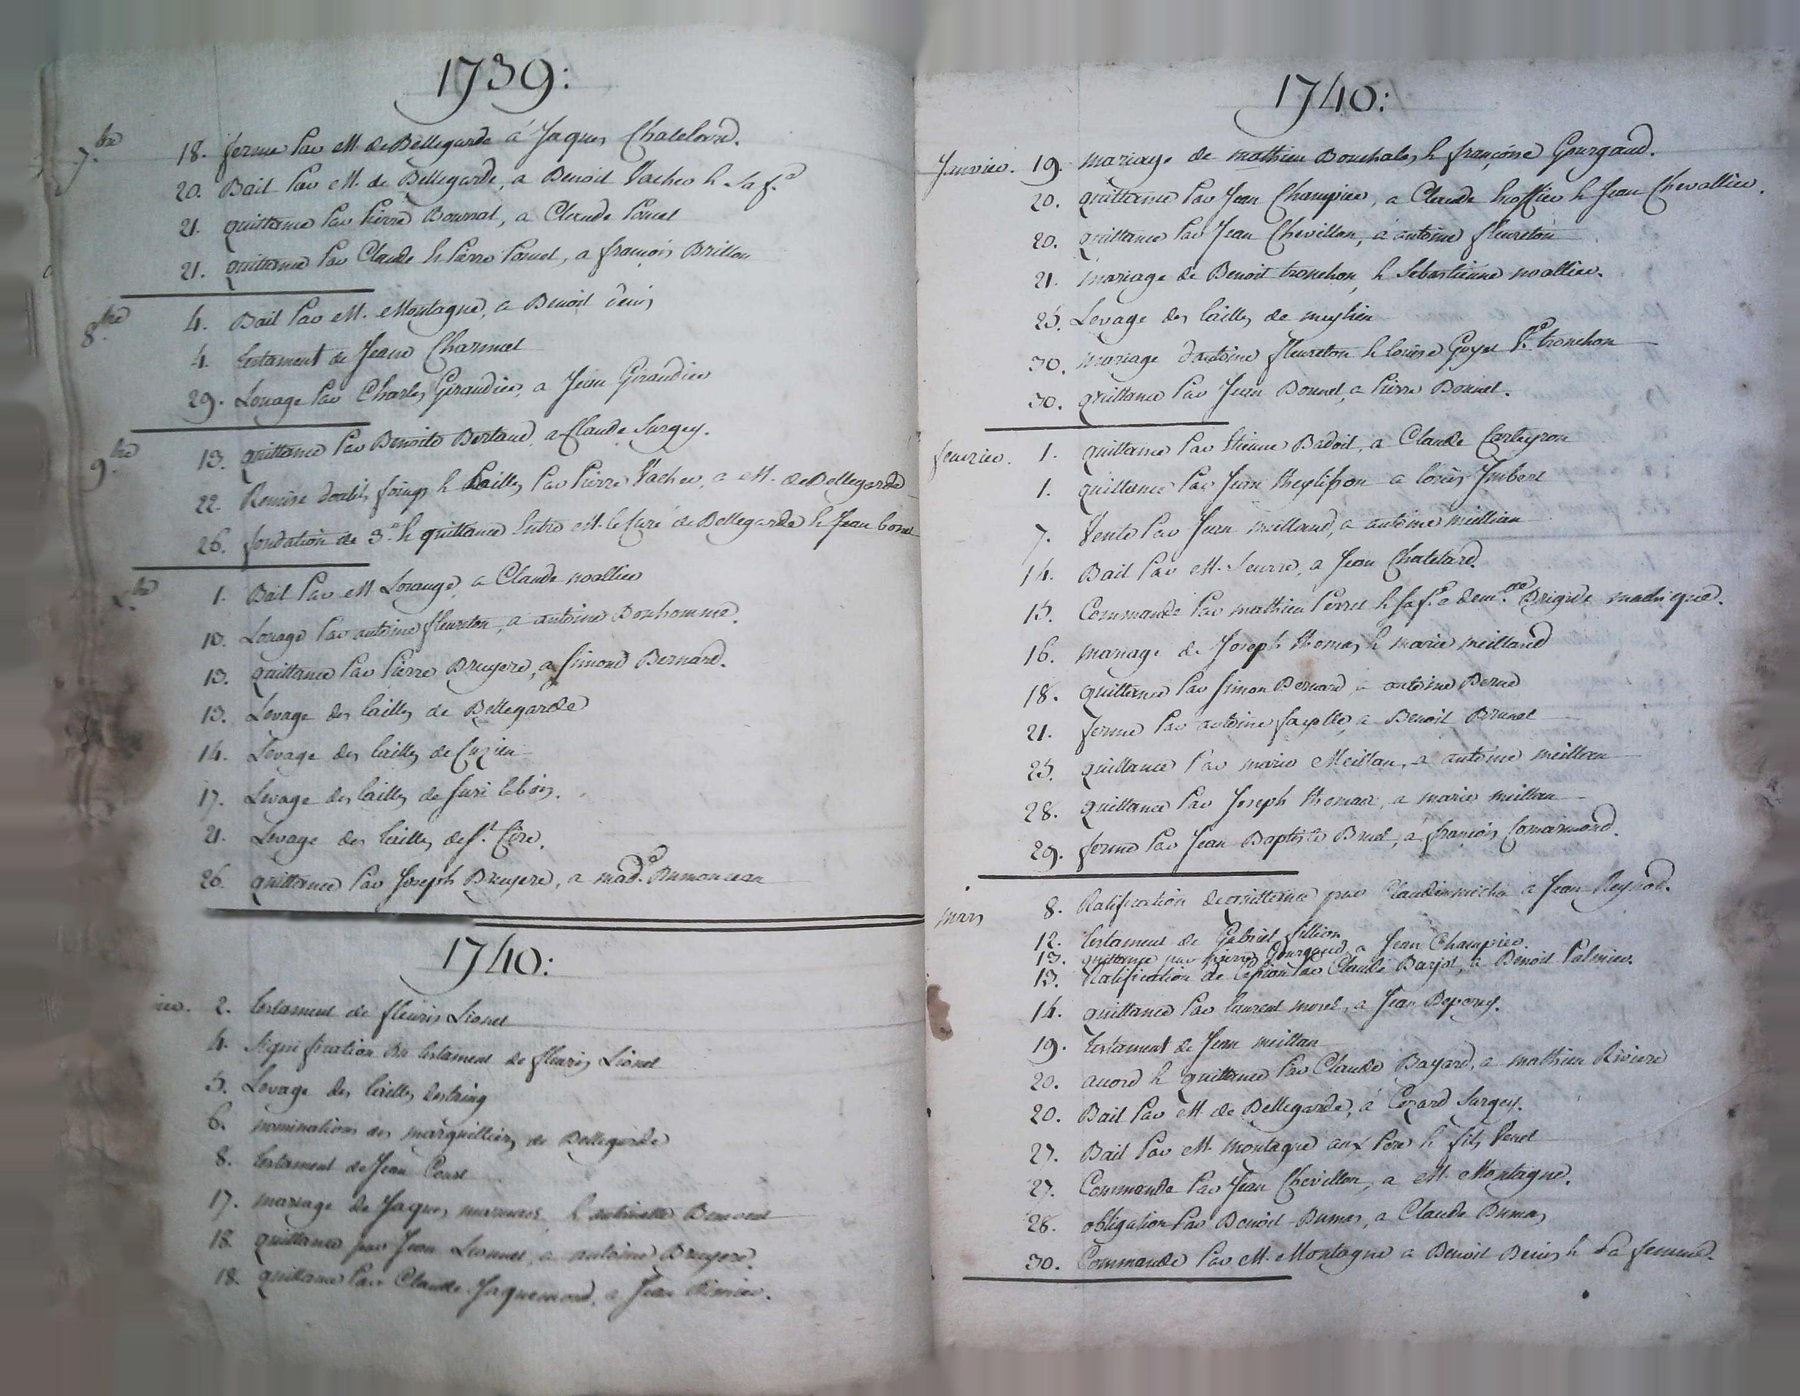 1739:
7.bre 18. ferme par M. de Bellegarde à Jaques Chatelard.
20. Bail par M. de Bellegarde, a Benoit Vacher & sa f.e
21. quittance par Pierre Bournat, a Claude Poncet
21. quittance par Claude & Pierre Poncet, a françois Brillon
8.bre 4. Bail par M. Montagne, a Benoit Denis
4. testament de Jeane Charmet
29. Louage par Charles Giraudier, a Jean Giraudier
9.bre 13. quittance par Benoite Bertaud, a Claude Surgey.
22. Remise d'outils, foings & Pailles par Pierre Vacher, a M. de Bellegarde
26. fondation de 3.# & quittance Entre M. le Curé de Bellegarde & Jean
bre 1. Bail par M. Lorange, a Claude noallier
10. Louage par antoine fleureton, a antoine Bonhomme.
13. quittance par Pierre Bruyere, a Simond Bernard.
13. Levage des tailles de Bellegarde
14. Levage des tailles de Cuzieu
17. Levage des tailles de Suri le bois.
21. Levage des tailles de S.t Cire.
26. quittance par Joseph Bruyere, a mad.e Dumonceau
1740:
ier. 2. testament de fleuris Lionet
4. signification du testament de fleuris Lionet
5. Levage des tailles
6. nominations des marguilliers de Bellegarde
8. testament de Jean
17. mariage de Jaques & antoinette
18. quittance par Jean Lionnet, a antoine Bruyere.
18. quittance par Claude Jaquemond, a Jean
1740:
Janvier. 19. mariage de mathieu Bouchalas & françoise Gourgaud.
20. quittance par Jean Champier, a Claude & Jean Chevallier.
20. quittance par Jean Chevillon, a antoine fleureton
21. mariage de Benoit tronchon, & Sebastienne noallier.
25. Levage des tailles de meylieu
30. mariage d'antoine fleureton & Goyet V.e tronchon
30. quittance par Jean Bonnet, a Pierre Bonnet.
fevrier. 1. quittance par Etienne Badoil, a Claude Carteyron
1. quittance par Jean a Imbert
7. Vente par Jean meilland, a antoine meillian
14. Bail par M. Seurre, a Jean Chatelard.
15. Commande par mathieu Perret & sa f.e a dem.lle Brigide
16. mariage de Joseph thomas, & marie meilland
18. quittance par Simon Bernard, a antoine
21. ferme par antoine fayolle, a Benoit Brunet
25. quittance par marie Meillan, a antoine meillan
28. quittance par Joseph thomas, a marie meillan
29. ferme par Jean Baptiste Bruel, a françois Comarmond.
mars 8. Ratification de quittance par Claudine a Jean Reynod.
12. testament de Gabriel fillion
13. quittance par pierre Gourgaud, a Jean Champier.
13. Ratification de Cession par Claude Barjot, a Benoit Palmier.
14. quittance par laurent morel, a Jean
19. testament de Jean meillan
20. accord & quittance par Claude Bayard, a mathieu Riviere
20. Bail par M. de Bellegarde, a Cezard Surgey.
27. Bail par M. montagne aux Pere & fils Venet
27. Commande par Jean Chevillon, a M. Montagne.
28. obligation par Benoit Dumas, a Claude Dumas
30. Commande par M. Montagne a Benoit Denis & sa femme.